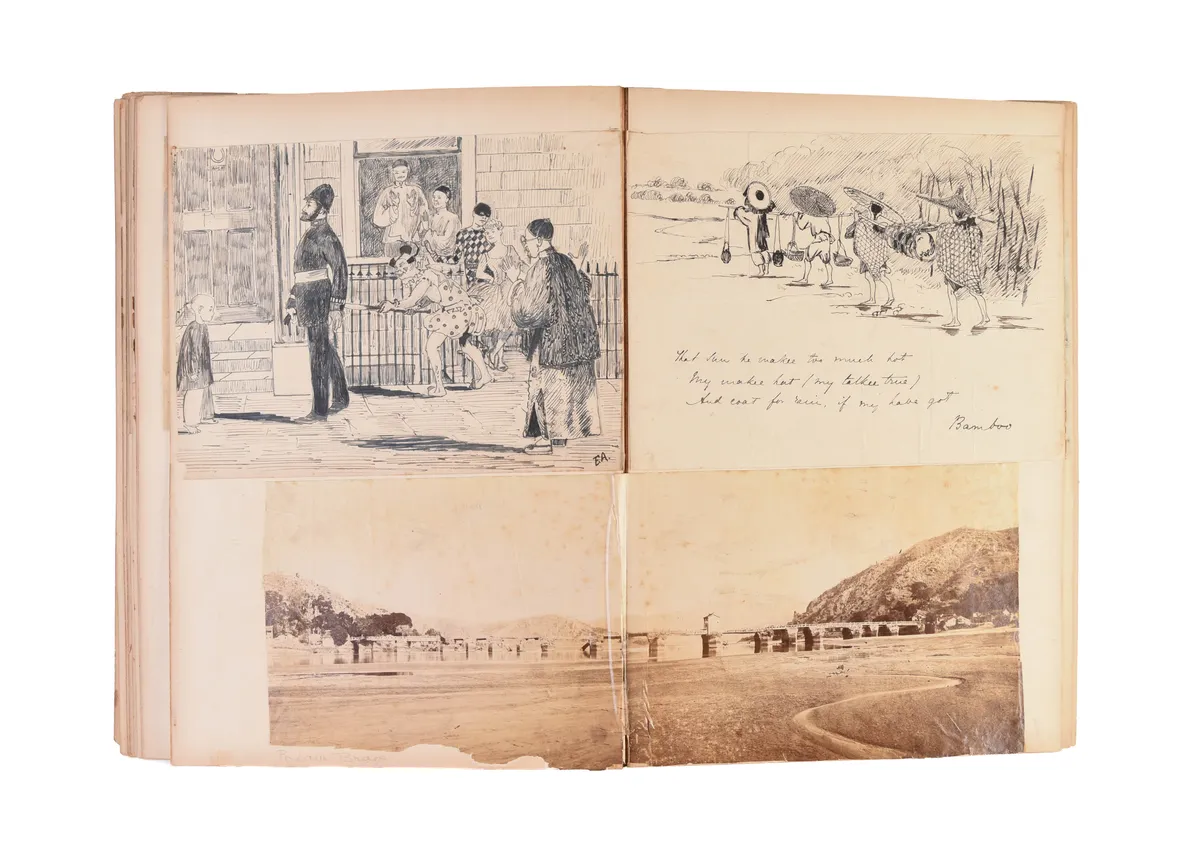 EA.
That Sun he makee too much hot
My makee hat (my talkee true)
And coat for rain, if my have got
Bamboo